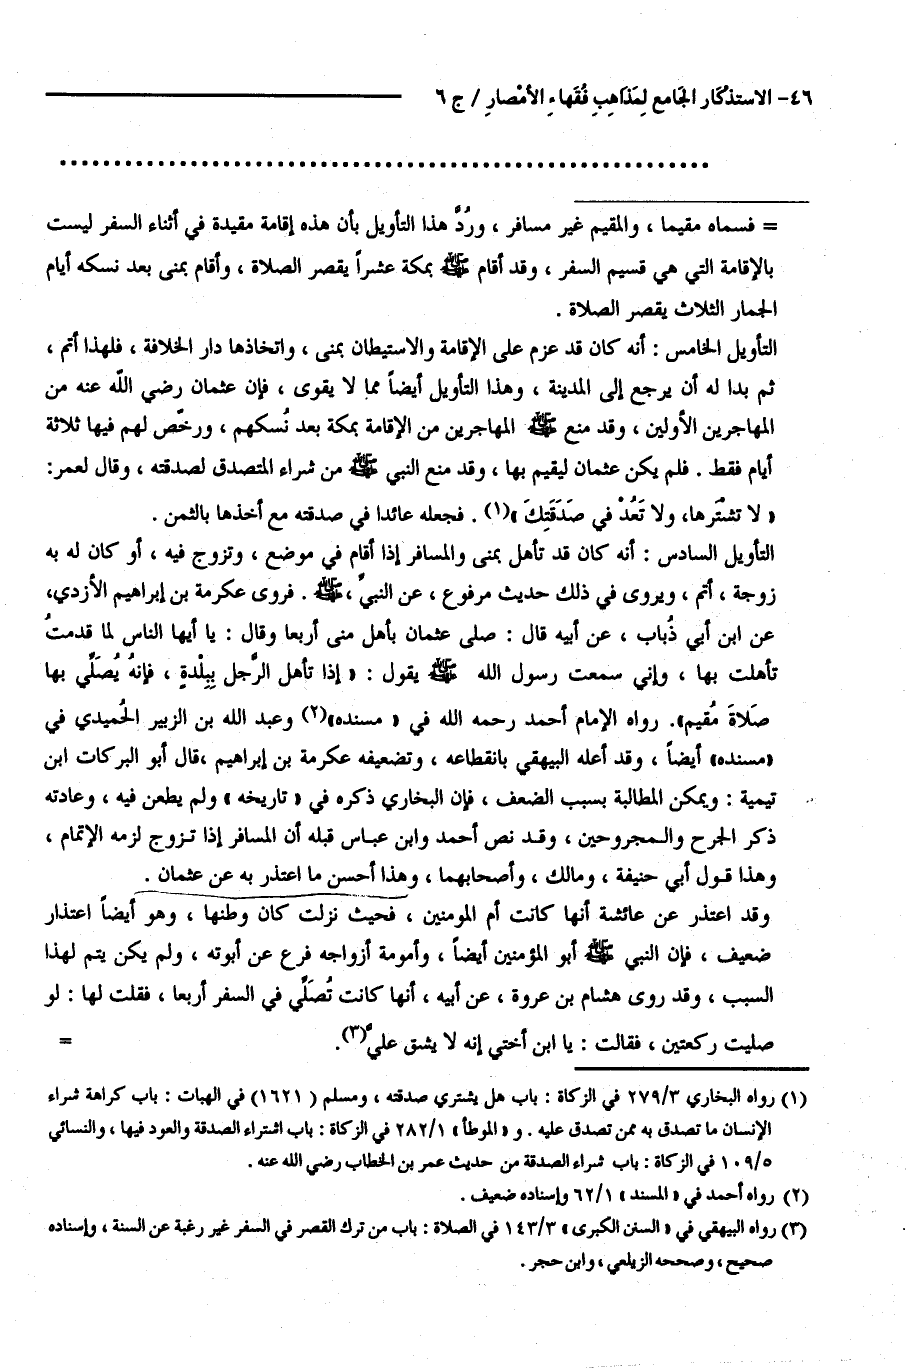 ٤٦- الاستذكار الجامع لِمَذَاهِبِ فُقَهاءِ الأَمْصارِ / ج ٦
= فسماه مقيما ، والمقيم غير مسافر ، ورُدَّ هذا التأويل بأن هذه إقامة مقيدة في أثناء السفر ليست
بالإقامة التي هي قسيم السفر ، وقد أقام ﷺ بمكة عشراً يقصر الصلاة ، وأقام بمنى بعد نسكه أيام
الجمار الثلاث يقصر الصلاة .
التأويل الخامس : أنه كان قد عزم على الإقامة والاستيطان بمنى ، واتخاذها دار الخلافة ، فلهذا أتم ،
ثم بدا له أن يرجع إلى المدينة ، وهذا التأويل أيضاً مما لا يقوى ، فإن عثمان رضي اللّه عنه من
المهاجرين الأولين ، وقد منع ﷺ المهاجرين من الإقامة بمكة بعد نُسكهم ، ورخّص لهم فيها ثلاثة
أيام فقط . فلم يكن عثمان ليقيم بها ، وقد منع النبي ﷺ من شراء المتصدق لصدقته ، وقال لعمر:
« لا تشْتَرها، ولا تَعُدْ في صَدَقَتِكَ »(١) . فجعله عائدا في صدقته مع أخذها بالثمن .
التأويل السادس : أنه كان قد تأهل بمنى والمسافر إذا أقام في موضع ، وتزوج فيه ، أو كان له به
زوجة ، أتم ، ويروى في ذلك حديث مرفوع ، عن النبيّ ،ﷺ . فروى عكرمة بن إبراهيم الأزدي،
عن ابن أبي ذُباب ، عن أبيه قال : صلى عثمان بأهل منى أربعا وقال : يا أيها الناس لما قدمتُ
تأهلت بها ، وإني سمعت رسول الله ﷺ يقول : « إذا تأهل الرَّجل بِبِلْدةٍ ، فإنهُ يُصَلِّي بها
صَلاةَ مُقيم». رواه الإمام أحمد رحمه الله في « مسنده»(٢) وعبد الله بن الزبير الحُميدي في
«مسنده» أيضاً ، وقد أعله البيهقي بانقطاعه ، وتضعيفه عكرمة بن إبراهيم ،قال أبو البركات ابن
تيمية : ويمكن المطالبة بسبب الضعف ، فإن البخاري ذكره في « تاريخه » ولم يطعن فيه ، وعادته
ذكر الجرح والـمجروحين ، وقـد نص أحمد وابن عباس قبله أن المسافر إذا تـزوج لزمه الإتمام ،
وهذا قـول أبي حنيفة ، ومالك ، وأصحابهما ، وهذا أحسن ما اعتذر به عن عثمان .
وقد اعتذر عن عائشة أنها كانت أم المومنين ، فحيث نزلت كان وطنها ، وهو أيضاً اعتذار
ضعيف ، فإن النبي ﷺ أبو المؤمنين أيضاً ، وأمومة أزواجه فرع عن أبوته ، ولم يكن يتم لهذا
السبب ، وقد روى هشام بن عروة ، عن أبيه ، أنها كانت تُصَلِّي في السفر أربعا ، فقلت لها : لو
صليت ركعتين ، فقالت : يا ابن أختي إنه لا يشق عليّ(٣). =
(١) رواه البخاري ٢٧٩/٣ في الزكاة : باب هل يشتري صدقته ، ومسلم ( ١٦٢١) في الهبات : باب كراهة شراء
الإنسان ما تصدق به ممن تصدق عليه . و « الموطأ » ٢٨٢/١ في الزكاة : باب اشتراء الصدقة والعود فيها ، والنسائي
١٠٩/٥ في الزكاة : باب شراء الصدقة من حديث عمر بن الخطاب رضي الله عنه .
(٢) رواه أحمد في « المسند » ٦٢/١ وإسناده ضعيف .
(٣) رواه البيهقي في « السنن الكبرى » ١٤٣/٣ في الصلاة : باب من ترك القصر في السفر غير رغبة عن السنة ، وإسناده
صحيح ، وصححه الزيلعي ، وابن حجر .